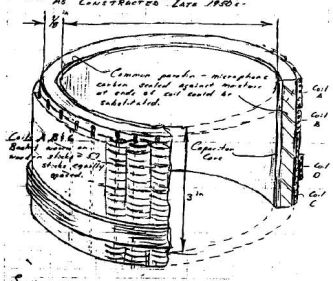 AS CONSTRUCTED LATE 1950s-
in
Common parafin - microphone
carbon sealed against moisture
at ends of coil could be
substituted.
Coil
A
Coil
B
Coil
D
Coil
C
Coils A B & C
Basket woven on
wooden sticks = 57
sticks, equally
spaced.
Capacitor
Core
3 in